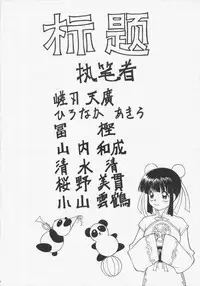 标题
执笔者
嵯刃天廣
ひろなか あきら
冨樫
山内和成
清水清
桜野美貫
小山雲鶴